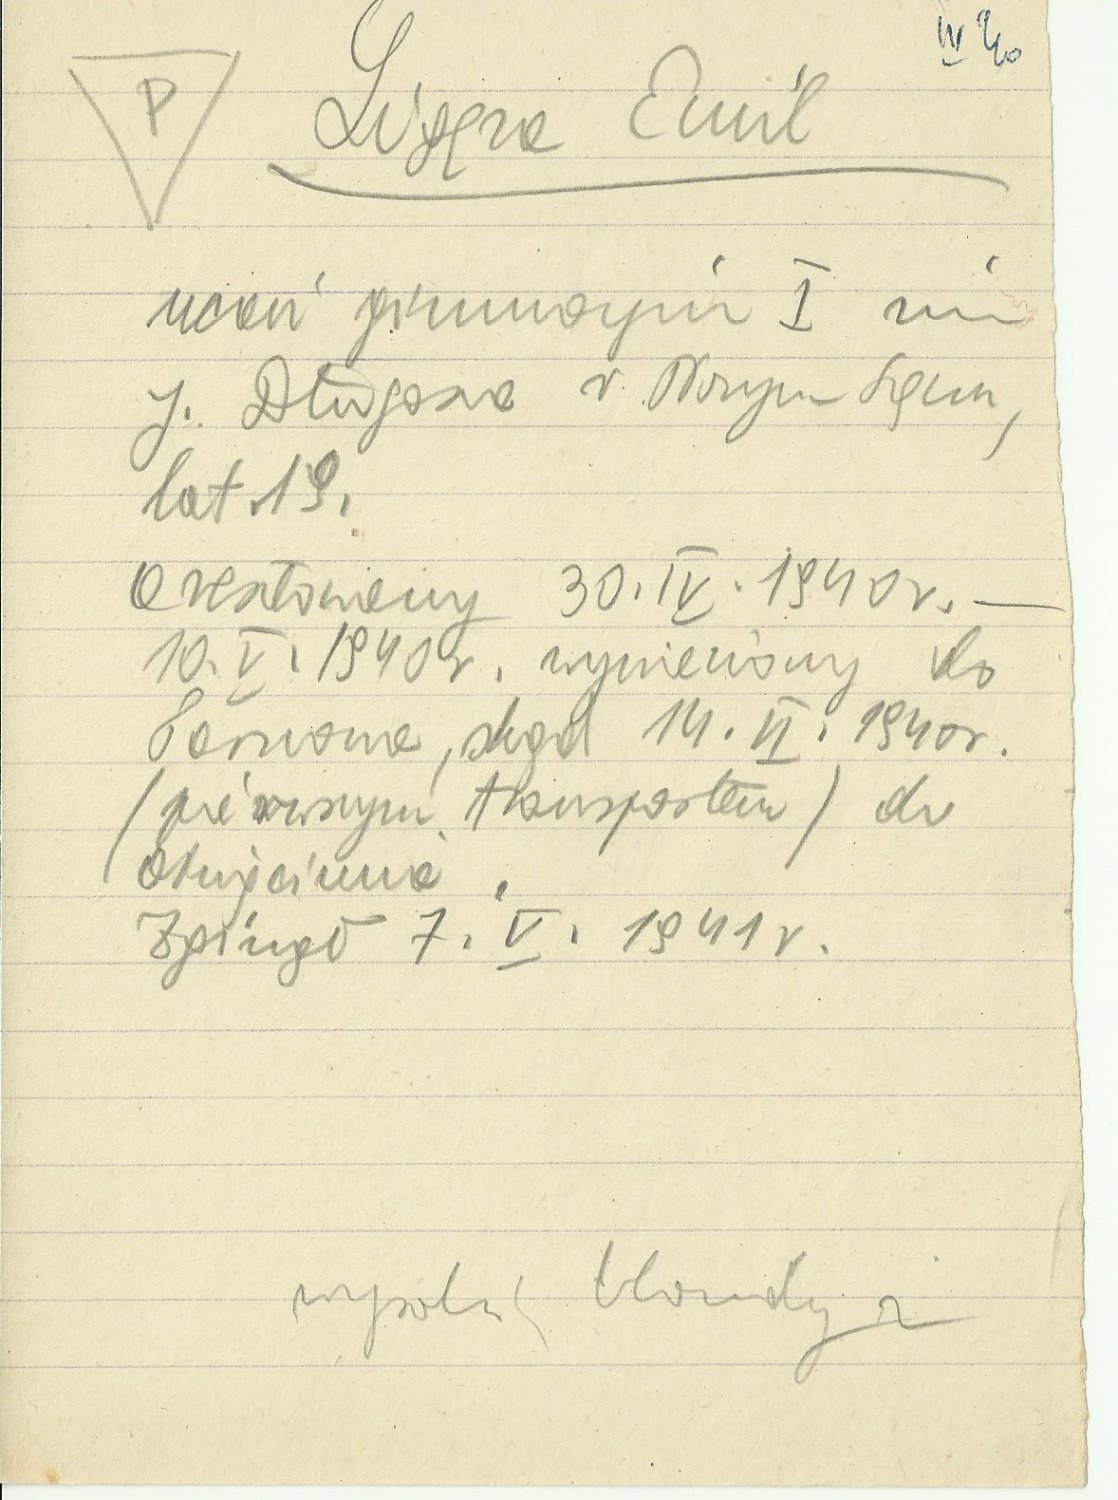 IV 40
P
Emil
uczeń gimnazjum I im
J. Długosza w Nowym Sączu,
lat 19.
Aresztowany 30.IV.1940r. —
10.V.1940r. wywieziony do
Tarnowa, skąd 14.VI.1940r.
(pierwszym transportem) do
Oświęcimia.
Zginął 7.V.1941r.
wysoki blondyn